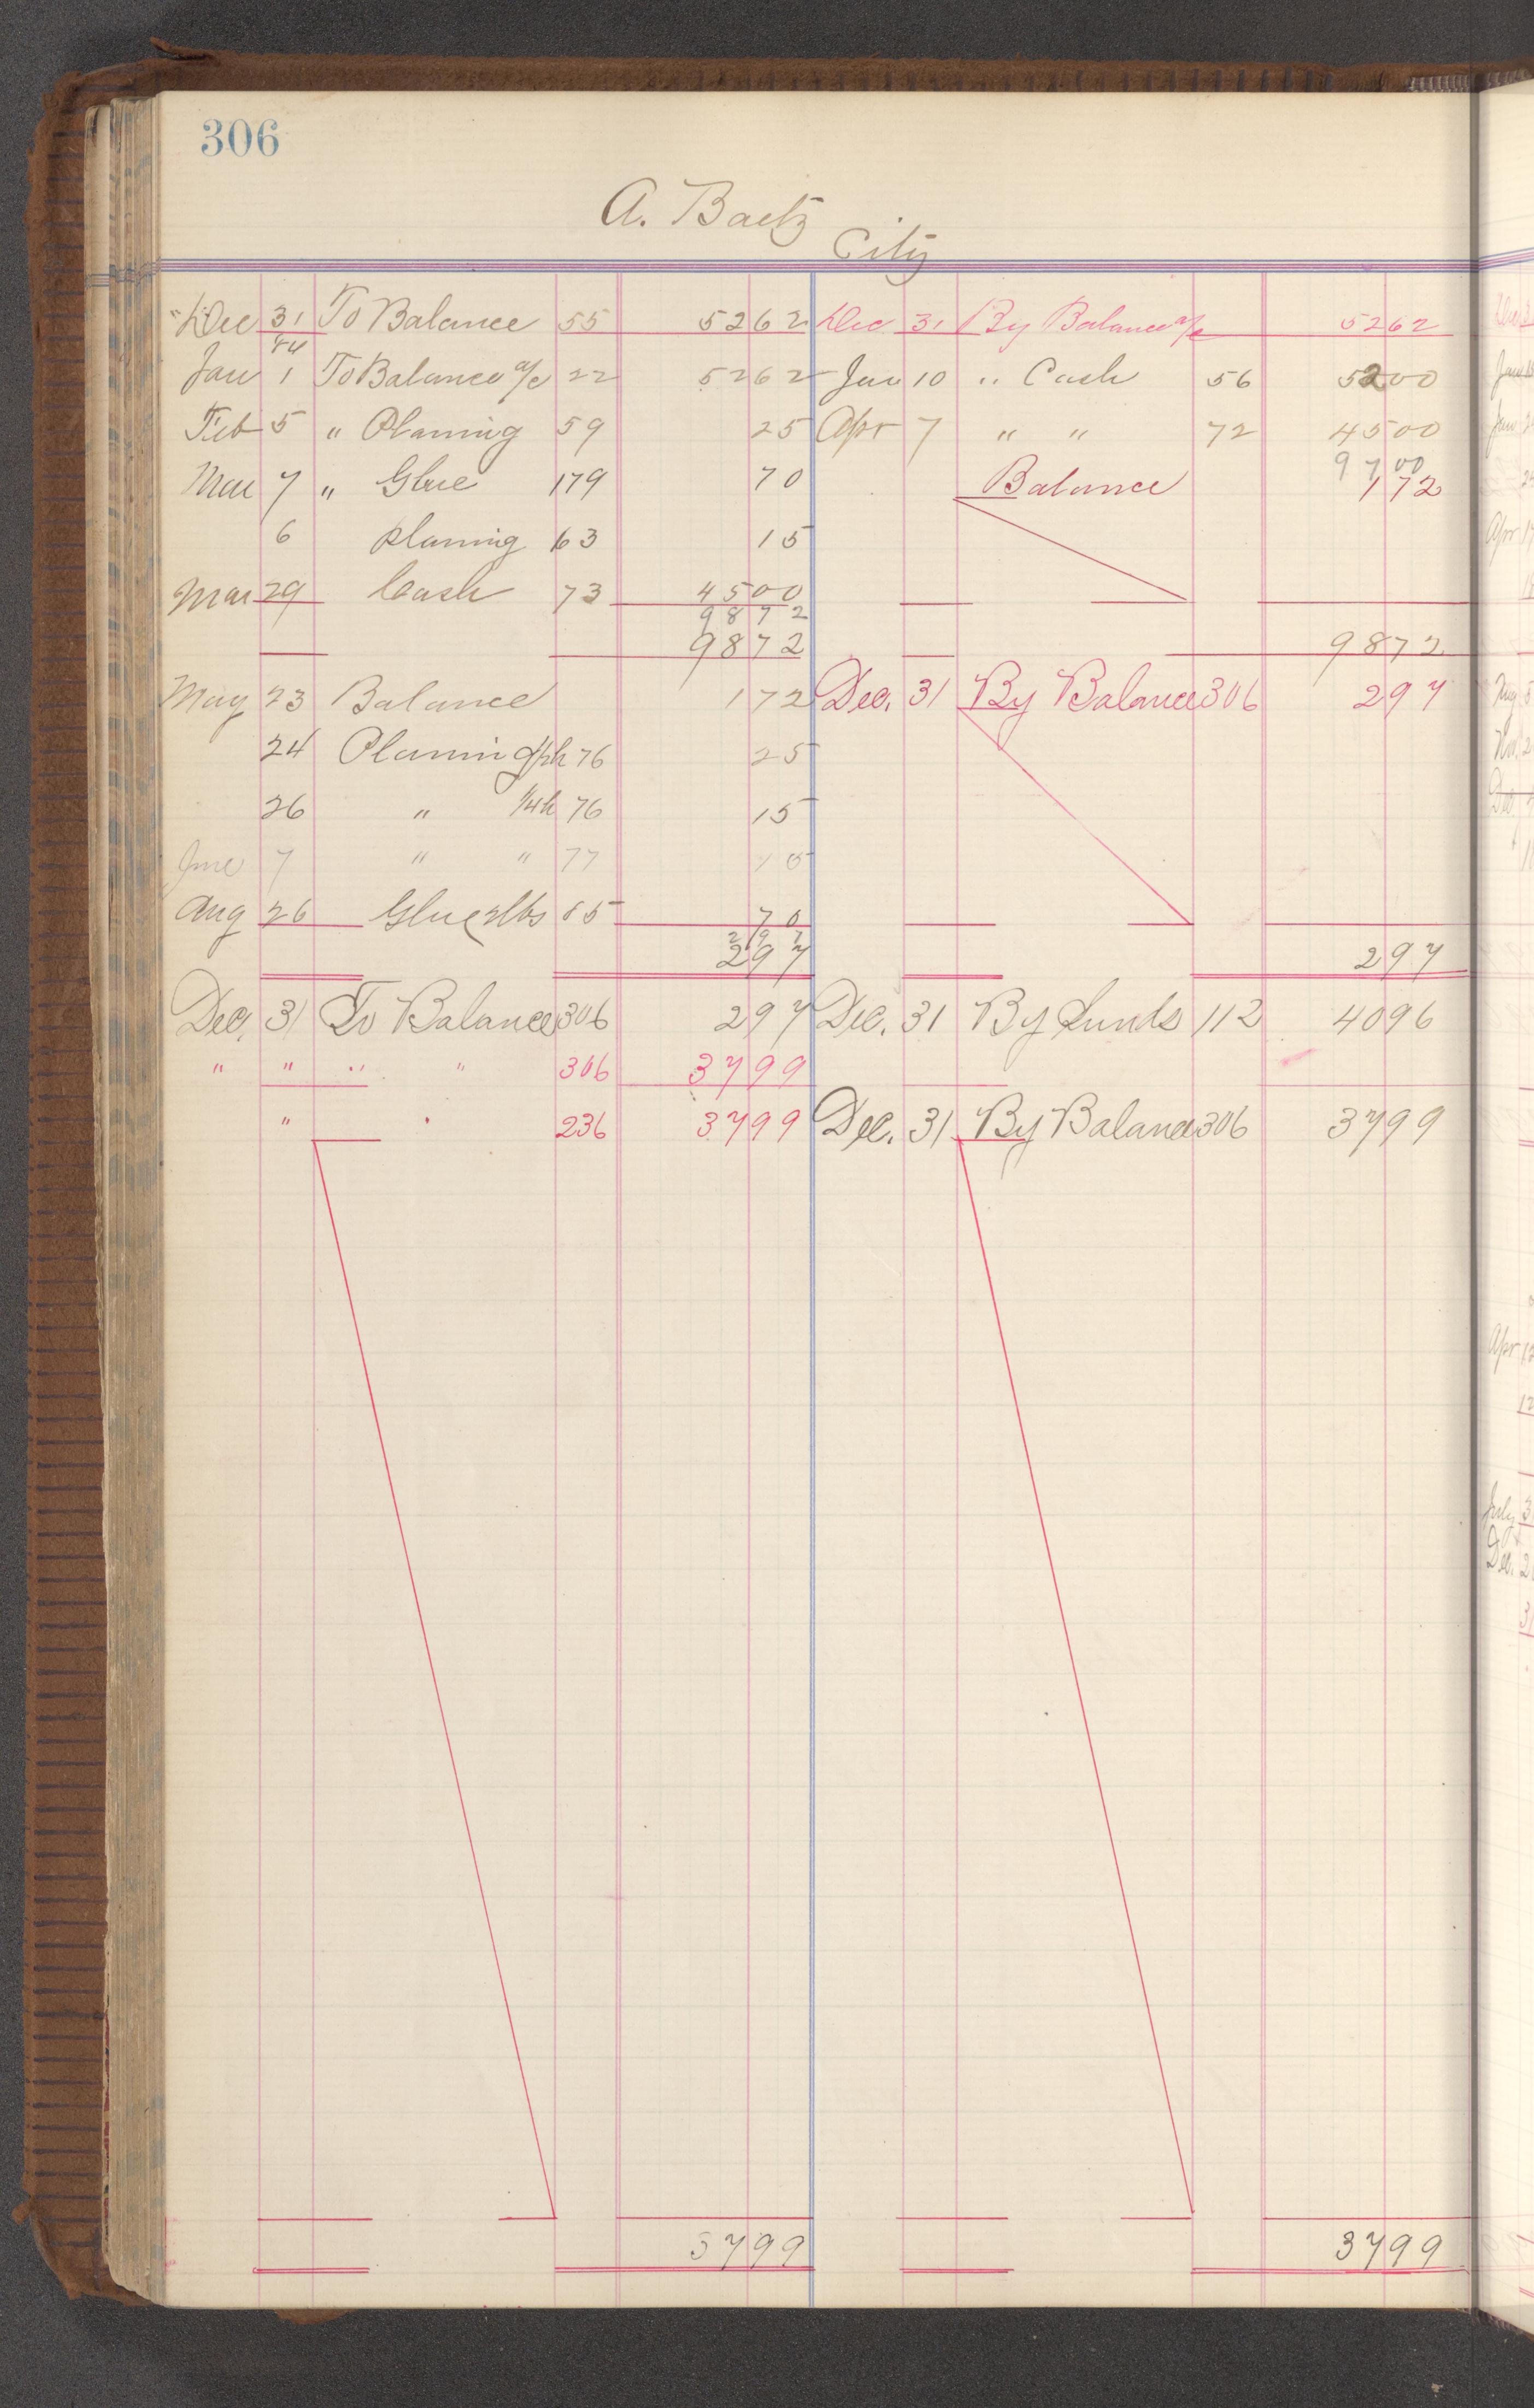 306
A. Baetz
City
Dec 31 To Balance 55 5262 Dec 31 By Balance a/c 5262
84
Jan 1 To Balance a/c 22 5262 Jan 10 " Cash 56 5200
Feb 5 " Planing 59 25 Apr 7 " " 72 4500
9700
Mar 7 " Glue 179 70 Balance 172
6 planing 63 15
Mar 29 Cash 73 4500
9872
9872 9872
May 23 Balance 172 Dec. 31 By Balance 306 297
24 Planing 76 25
26 " 1/4h 76 15
June 7 " " 77 15
Aug 26 Glue 2lbs 85 70
297
297 297
Dec. 31 To Balance 306 297 Dec. 31 By Sunds 112 4096
" " " " 306 3799
" " 236 3799 Dec. 31 By Balance 306 3799
3799 3799